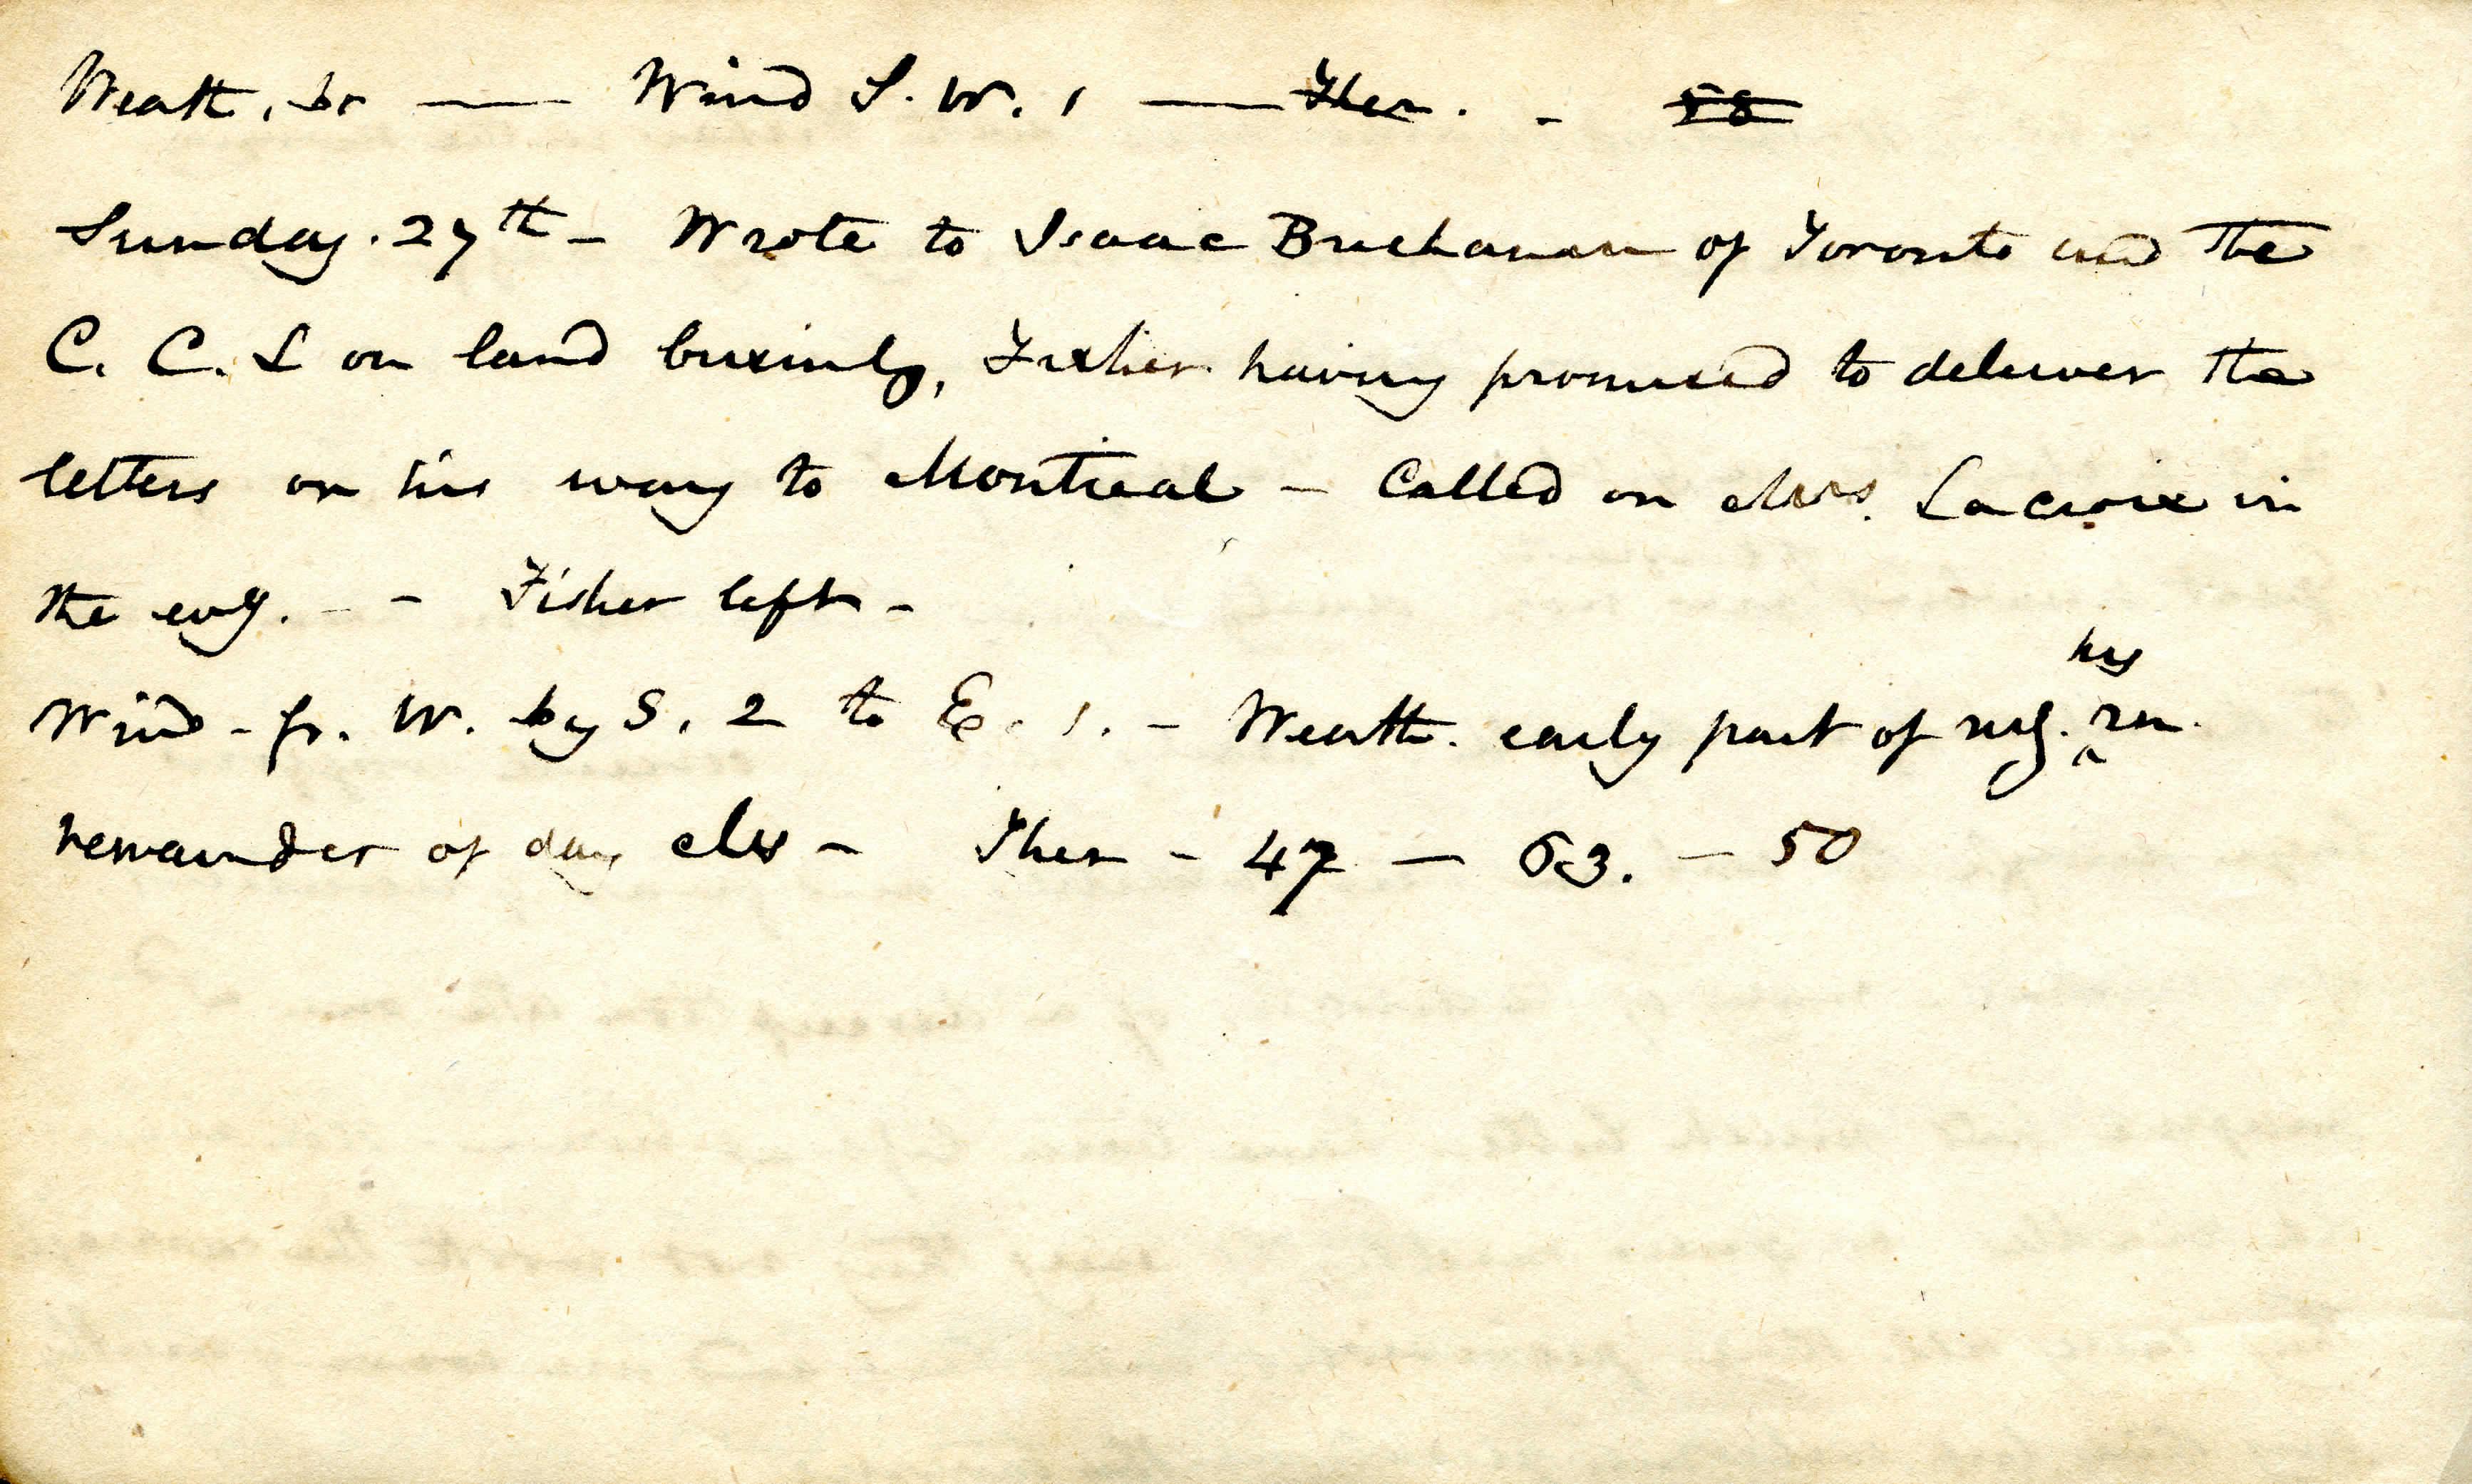 Weath. br — Wind S. W. 1 — Ther. - 58
Sunday. 27th - Wrote to Isaac Buchanan of Toronto and the
C. C. L on land business, Fisher having promised to deliver the
letters on his way to Montreal - Called on Mrs. Lacroix in
the evg. - - Fisher left -
Wind - fr. W. by S. 2 to E. 1. - Weath. early part of mg. hy rn.
remainder of day clr - Ther - 47 — 63. — 50